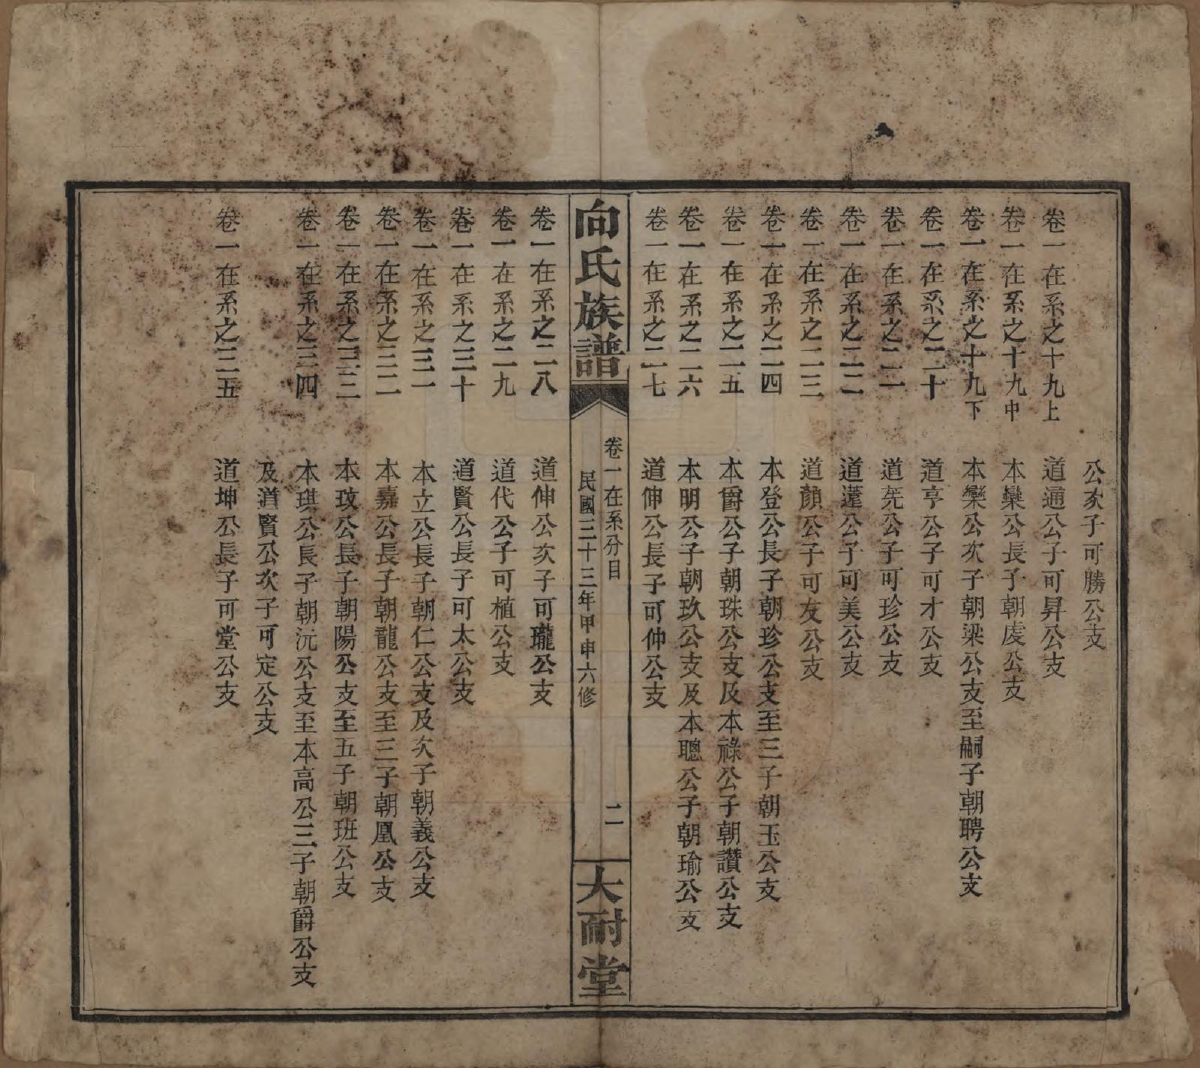 公次子可勝公支
卷一在系之十九上　道通公子可昇公支
卷一在系之十九中　本欒公長子朝虔公支
卷一在系之十九下　本欒公次子朝梁公支至嗣子朝聘公支
卷一在系之二十　道亨公子可才公支
卷一在系之二一　道先公子可珍公支
卷一在系之二二　道蓮公子可美公支
卷一在系之二三　道顏公子可友公支
卷一在系之二四　本登公長子朝珍公支至三子朝玉公支
卷一在系之二五　本爵公子朝珠公支及本祿公子朝讚公支
卷一在系之二六　本明公子朝玖公支及本聰公子朝瑜公支
卷一在系之二七　道伸公長子可仲公支
向氏族譜
卷一在系分目
民國三十三年甲申六修
二
大耐堂
卷一在系之二八　道伸公次子可瓏公支
卷一在系之二九　道代公子可植公支
卷一在系之三十　道賢公長子可太公支
卷一在系之三一　本立公長子朝仁公支及次子朝義公支
卷一在系之三二　本嘉公長子朝龍公支至三子朝凰公支
卷一在系之三三　本玫公長子朝陽公支至五子朝班公支
卷一在系之三四　本琪公長子朝沅公支至本高公三子朝爵公支
及道賢公次子可定公支
卷一在系之三五　道坤公長子可堂公支